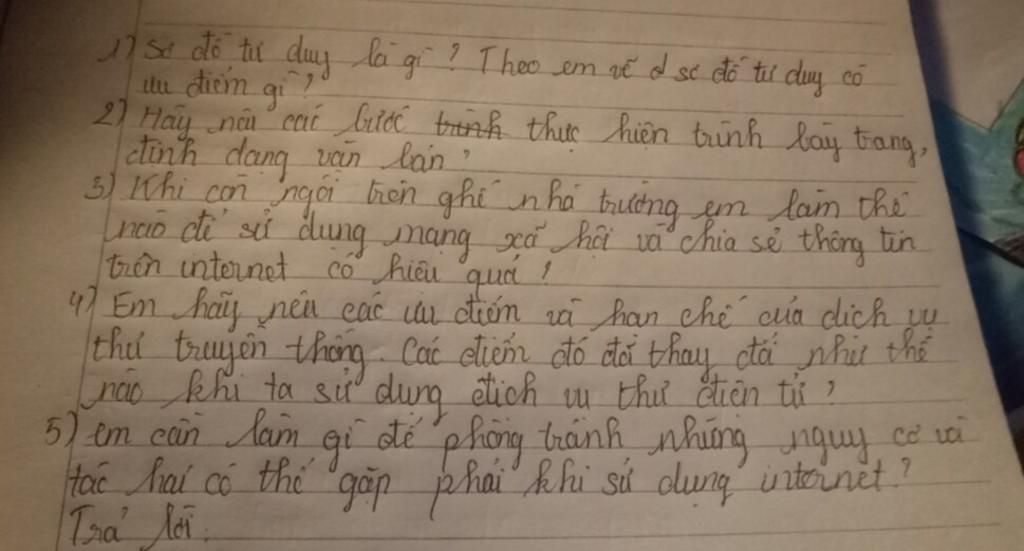 1) Sơ đồ tư duy là gì? Theo em vẽ sơ đồ tư duy có
ưu điểm gì?
2) Hãy nêu các bước trình thực hiện trình bày trang,
định dạng văn bản?
3) Khi còn ngồi trên ghế nhà trường em làm thế
nào để sử dụng mạng xã hội và chia sẻ thông tin
trên internet có hiệu quả!
4) Em hãy nêu các ưu điểm và hạn chế của dịch vụ
thư truyền thống. Các điểm đó đổi thay đã như thế
nào khi ta sử dụng dịch vụ thư điện tử?
5) em cần làm gì để phòng tránh những nguy cơ và
tác hại có thể gặp phải khi sử dụng internet?
Trả lời: